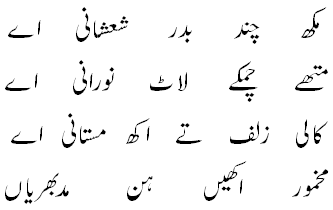 مکھ چند بدر شعشانی اے
متھے چمکے لاٹ نورانی اے
کالی زلف تے اکھ مستانی اے
مخمور اکھیں ہن مدبھریاں